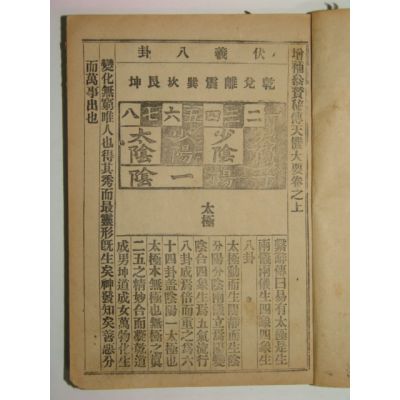 增補參贊秘傳天機大要卷之上
伏羲八卦
乾兌離震巽坎艮坤
二三四五六七八
少陰
少陽
太陰
陽
陰
一
太極
繫辭傳曰易有太極是生
兩儀兩儀生四象四象生
八卦
太極動而生陽靜而生陰
分陽分陰兩儀立焉陽變
陰合四象生焉五氣流行
八卦成焉倍而重之爲六
十四卦盖陰陽一太極也
太極本無極也無極之眞
二五之精妙合而凝乾道
成男坤道成女萬物化生
變化無窮唯人也得其秀而最靈形既生矣神發知矣善惡分
而萬事出也